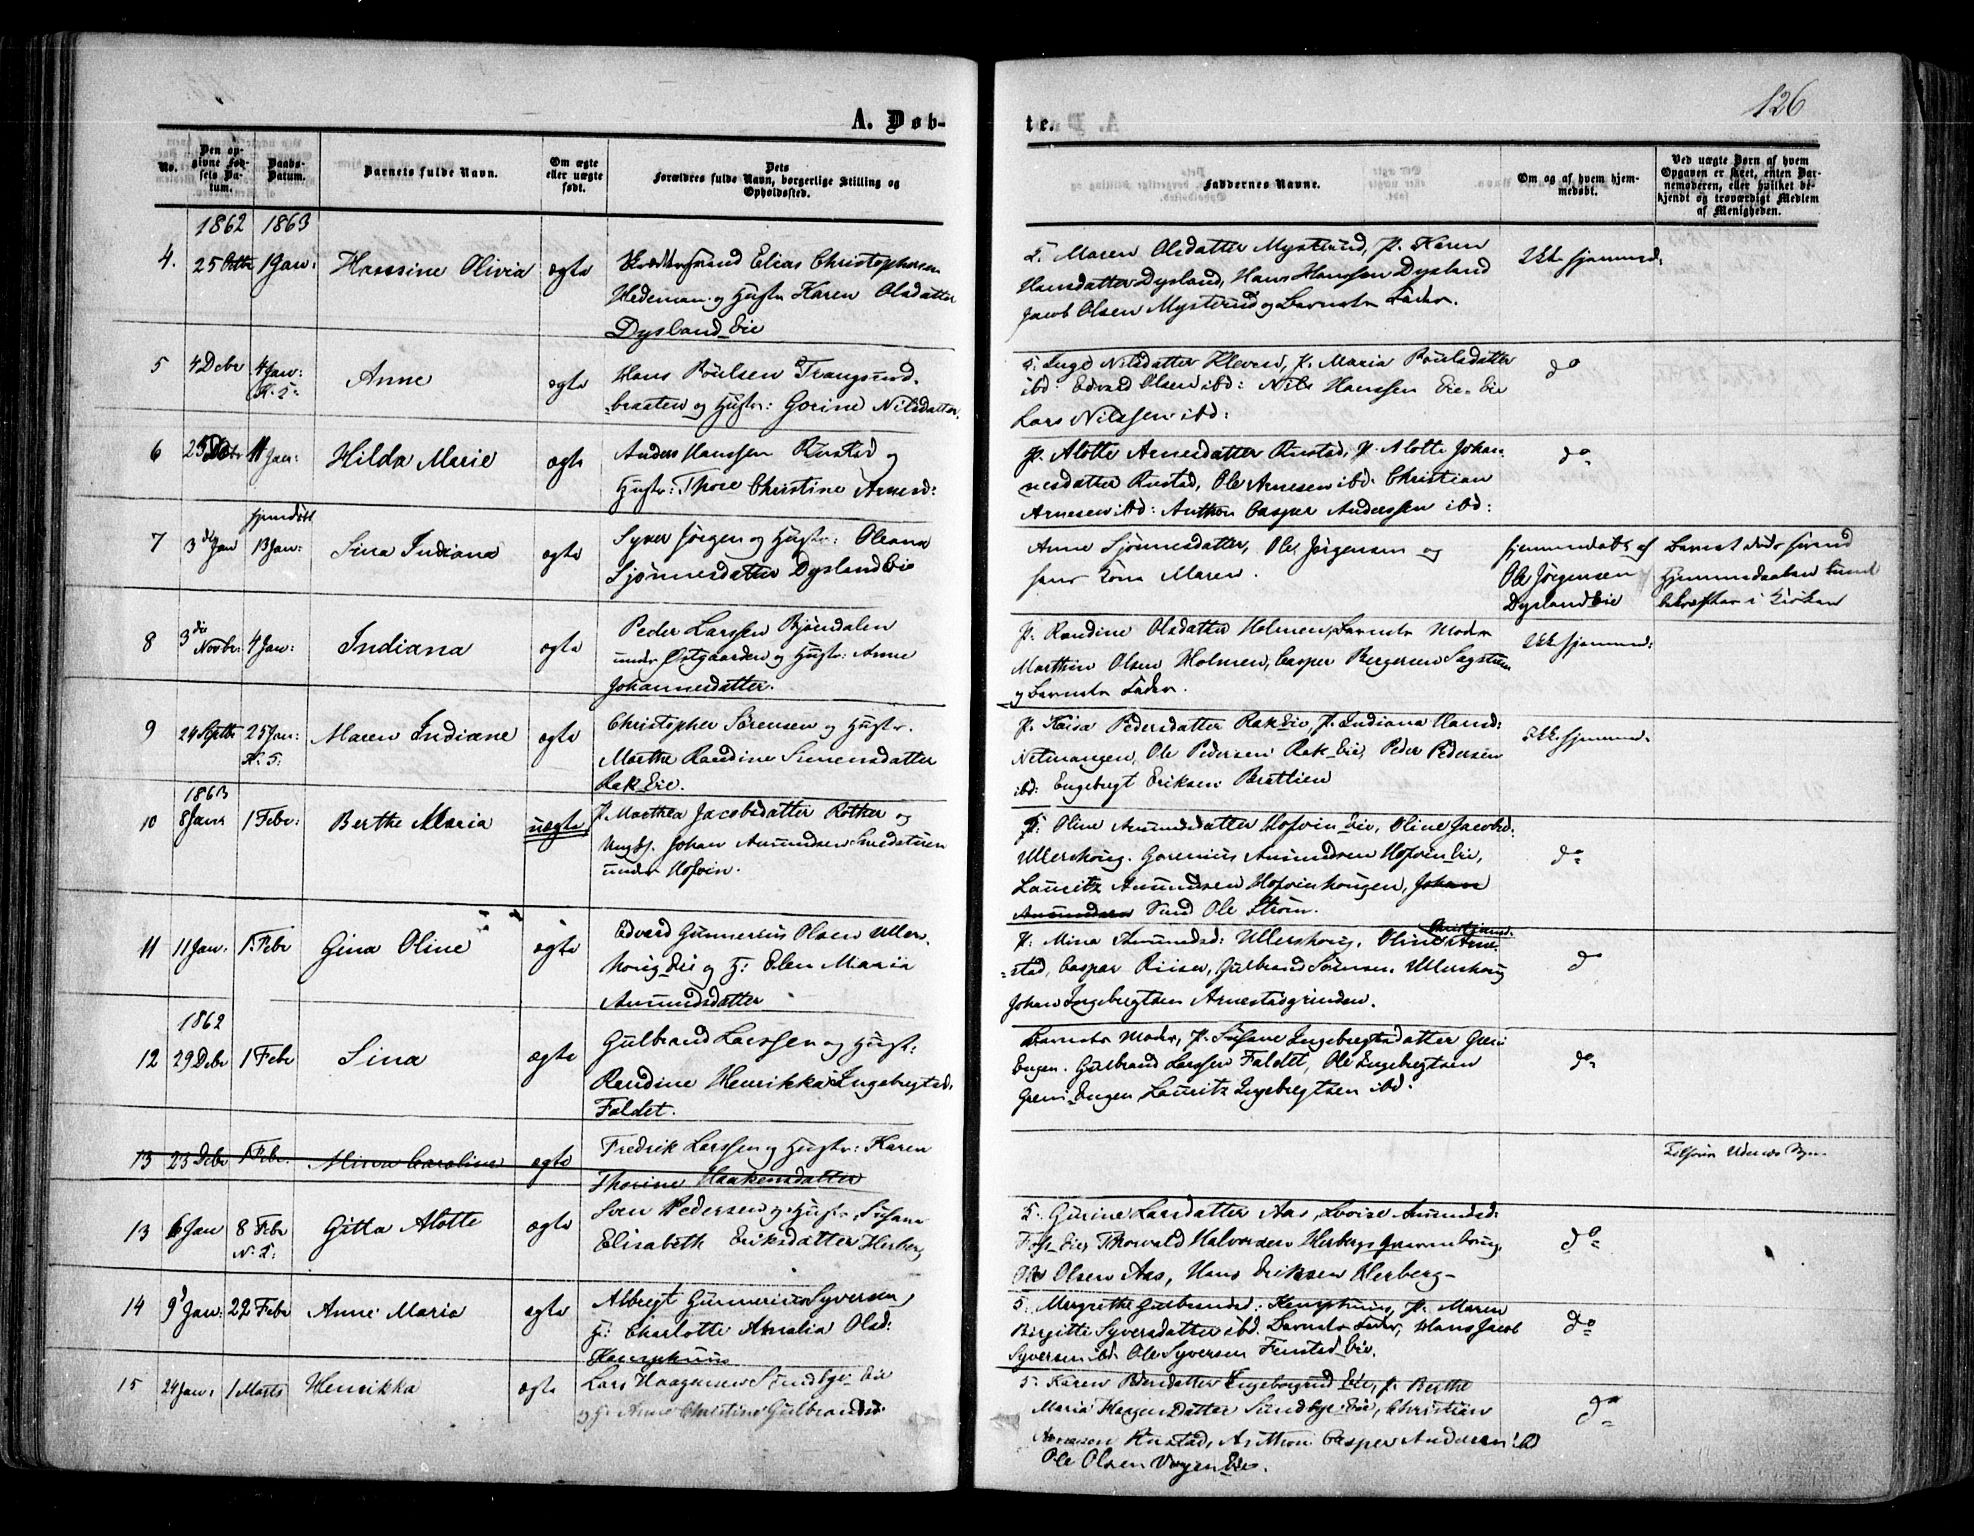 126
A. Døb-
te.
No.
Den op-
givne Fød-
sels Da-
tum.
Daabs-
Datum.
Barnets fulde Navn.
Om ægte
eller uægte
født.
Dets
Forældres fulde Navn, borgerlige Stilling og
Opholdssted.
Faddernes Navne.
Om og af hvem hjem-
medøbt.
Ved uægte Børn af hvem
Opgaven er skeet, enten Bar-
nemoderen, eller hvilket be-
kjendt og troværdigt Medlem
af Menigheden.
1862 1863
4. 25 Octr 1 Jan: Hanssine Olivia ægte
Elias Christophersen
Hedeman og Hustr Karen Olsdatter
Dysland Eie
Maren Olsdatter Mysterud, P. Karen
Hansdatter Dysland, Hans Hanssen Dysland
Jacob Olsen Mysterud og Barnets Fader.
Ikke hjemmed:
5 4 Debr 4 Jan: Anne ægte
Hans Poulsen Trangsund-
braaten og Hustr: Gorine Nilsdatter.
Inge Nilsdatter Kleven, P. Maria Poulsdatter
ibd Edvard Olsen ibd: Nils Hanssen Eie
Lars Nilssen ibd:
do
6 25 Debr 11 Jan: Hilda Marie ægte
Anders Hanssen Rustad og
Hustr: Thore Christine Arnesd:
P. Alotte Arnesdatter Rustad, P. Alotte Johan-
nesdatter Rustad, Ole Arnesen ibd. Christian
Arnesen ibd: Anthon Casper Anderssen ibd:
do
hjemdøbt
7 3die Jan 13 Jan: Sina Indiana ægte
Syver Jørgen og Hustr: Oleana
Sjønnesdatter Dysland Eie
Anne Sjønnesdatter, Ole Jørgensen og
hans Kone Maren.
hjemmedøbt af
Ole Jørgensen
Dysland Eie
Barnet døde førend
Hjemmedaaben kunde
bekræftes i Kirken
8 3die Novbr: 4 Jan: Indiana ægte
Peder Larssen Bjøndalen
under Østgaarden og Hustr: Anne
Johannesdatter.
P. Randine Olsdatter Holmen, Barnets Moder
Marthin Olsen Holmen, Casper Bergersen Sagstuen
og Barnets Fader.
Ikke hjemmed:
9 24 Septbr 25 Jan: Maren Indiane ægte
Christopher Sørensen og Hustr.
Marthe Randine Simensdatter
Rak Eie.
P. Kaisa Pedersdatter Rak Eie, P. Indiana Hansd:
Netmangen, Ole Pedersen Rak Eie, Peder Pedersen
ibd: Engebregt Eriksen Brattlien
Ikke hjemmed:
1863
10 8 Janr 1 Febr: Berthe Maria uægte
P. Marthea Jacobsdatter Rotker og
Ungk. Johan Amundsen Smedstuen
under Hofvin.
P: Oline Amundsdatter Hofvin Eie, Oline Jacobsd:
Ullershoug. Gorenius Amundsen Hofvin Eie,
Lauritz Amundsen Hofvinhougen, Johan
Amundsen Sund Ole Strøm.
do
11 11 Jan. 1. Febr Gina Oline ægte
Edvard Gunnerius Olsen Ullers-
houg Eie og H: Elen Maria
Amundsdatter
P: Mina Amundsd: Ullershoug, Oline Christiansd: Arne-
stad, Caspar Riiser, Gulbrand Sørensen Ullershoug
Johan Ingebregtsen Arnestadgrinden.
do
1862
12 29 Debr 1 Febr Sina ægte
Gulbrand Larssen og Hustr:
Randine Henrikka Ingebregtsd:
Faldet.
Barnets Moder, P. Susane Ingebregtsdatter Greni
Engen. Gulbrand Larssen Faldet, Ole Engebregtsen
Greni Engen Lauritz Ingebregtsen ibd:
do
13 23 Debr 1 Febr. Mina Caroline ægte
Fredrik Larssen og Hustr: Karen
Thorine Haakensdatter
13 6 Jan 8 Febr Gitta Alotte ægte
Sven Pedersen og Hustr. Susane
Elisabeth Eriksdatter Herberg
Gurine Larsdatter Aas, Lovise Amundsd:
Foss Eie, Thorvald Halvorsen Herbergs
Ole Olsen Aas, Hans Eriksen Herberg
do
14 9 Jan: 22 Febr Anne Maria ægte
Albregt Gunnerius Syversen,
H: Charlotte Amalia Olsd:
Kamphuus
Margrethe Gulbrandsd: Kamphuus, P. Maren
Birgitte Syversdatter ibd. Barnets Fader, Hans Jacob
Syversen ibd Ole Syversen Fenstad Eie.
do
15 24 Jan: 1 Marts Henrikka ægte
Lars Haagensen Sundbye Eie
og H. Anne Christine Gulbrandsd:
Karen Pedersdatter Ingeborgrud Eie, P. Berthe
Maria Haagensdatter Sundbye Eie, Christian
Arnesen Rustad, Anthon Casper Andersen ibd
Ole Olsen Eie.
do